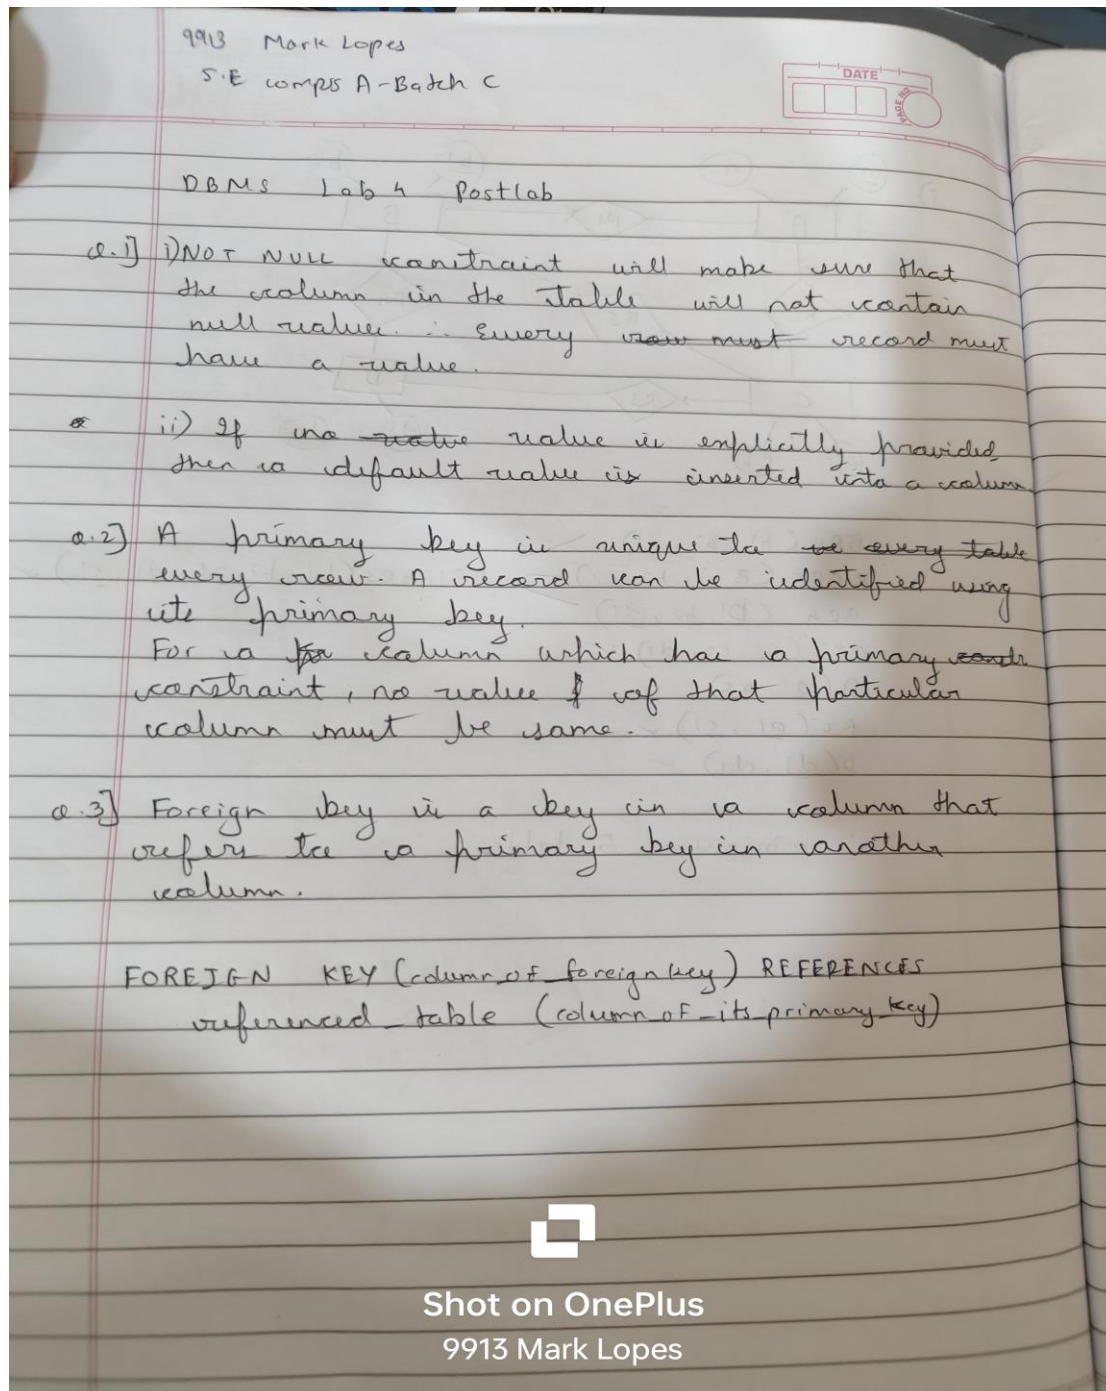 9913 Mark Lopes
S.E comps A-Batch C
DATE
PAGE NO.
DBMS Lab 4 Postlab
Q.1] i) NOT NULL constraint will make sure that
the column in the table will not contain
null value. ∴ Every row must record must
have a value.
ii) If no value value is explicitly provided
then a default value is inserted into a column
Q.2] A primary key is unique to every table
every row. A record can be identified using
its primary key.
For a column which has a primary
constraint, no value of that particular
column must be same.
Q.3] Foreign key is a key in a column that
refers to a primary key in another
column.
FOREIGN KEY (column_of_foreign key) REFERENCES
referenced_table (column_of_its_primary_key)
Shot on OnePlus
9913 Mark Lopes